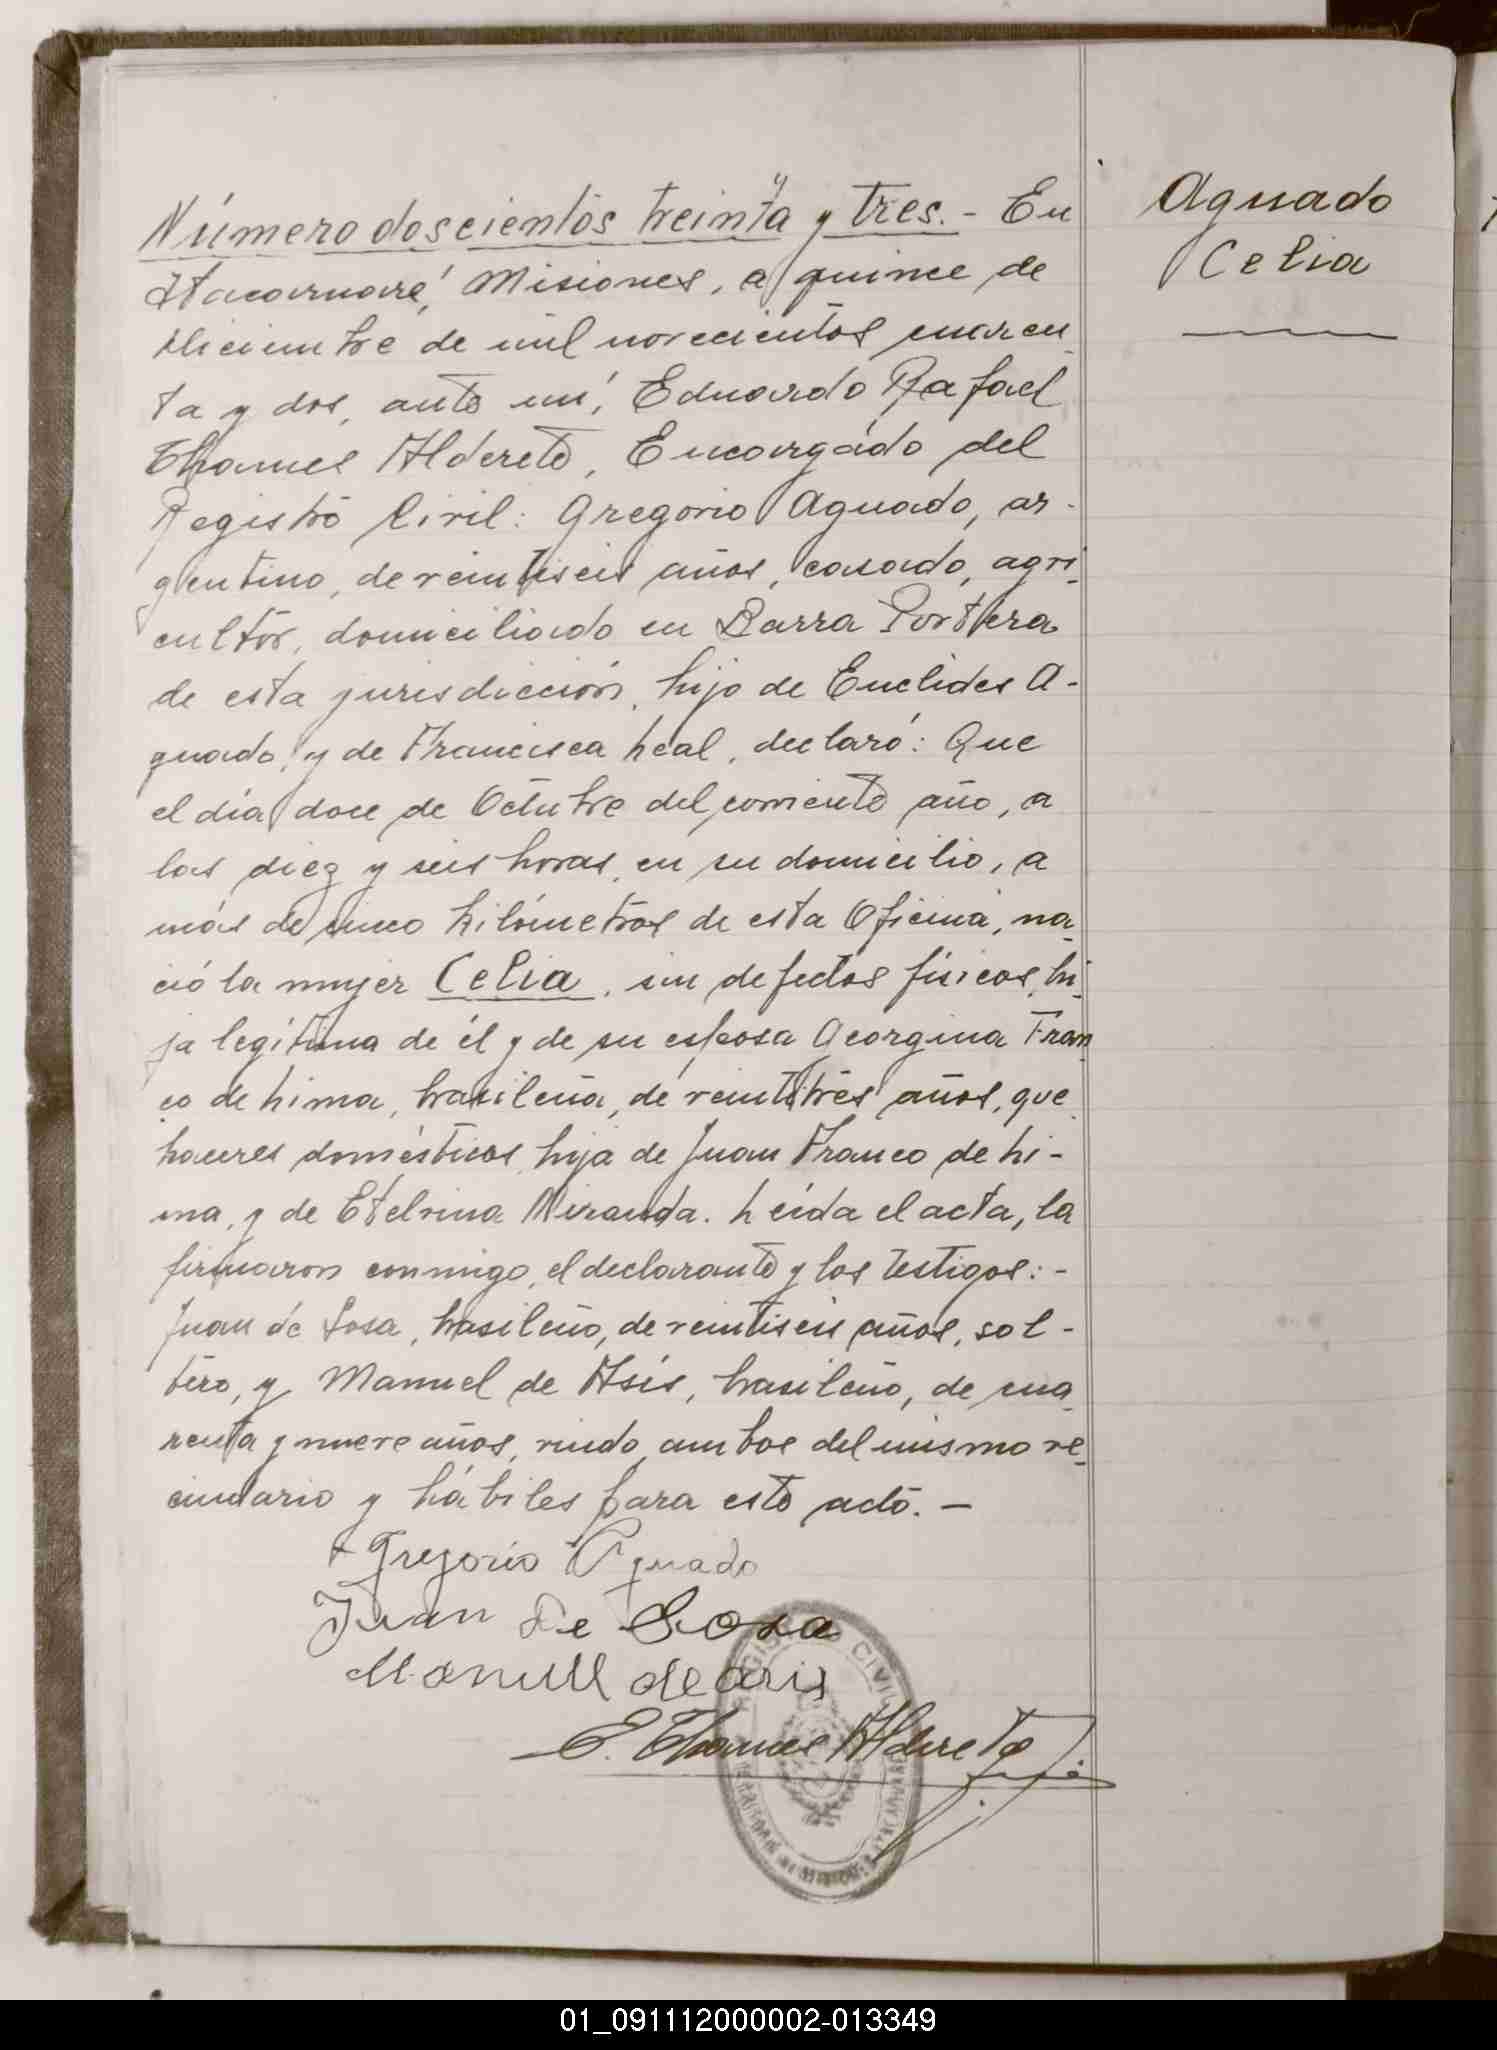 Número doscientos treinta y tres. - En
Itacaruaré, Misiones, a quince de
Diciembre de mil novecientos cuaren_
ta y dos, ante mí, Eduardo Rafael
Thames Alderete, Encargado del
Registro Civil: Gregorio Aguado, ar-
gentino, de veintiseis años, casado, agri_
cultor, domiciliado en Barra Portera
de esta jurisdicción, hijo de Euclides A-
guado, y de Francisca Leal, declaró: Que
el día doce de Octubre del corriente año, a
las diez y seis horas, en su domicilio, a
más de cinco kilómetros de esta Oficina, na_
ció la mujer Celia, sin defectos físicos, hi_
ja legítima de él y de su esposa Georgina Fran_
co de Lima, brasileña, de veintitrés años, que_
haceres domésticos, hija de Juan Franco de Li-
ma, y de Etelvina Miranda. Leída el acta, la
firmaron conmigo, el declarante y los testigos: -
Juan de Sosa, brasileño, de veintiseis años, sol-
tero, y Manuel de Asís, brasileño, de cua_
renta y nueve años, viudo, ambos del mismo ve_
cindario y hábiles para este acto. -
Gregorio Aguado
Juan De Sosa
Manuel de asis
E. Thames Alderete
REGISTRO CIVIL
Aguado
Celia
01_091112000002-013349